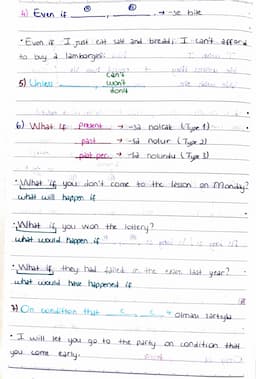 4) Even if ① , ② → -se bile
• Even if I just eat salt and bread, I can't afford
to buy a lamborgini.
can't
5) Unless won't
don't
6) What if present → -sa nolcak (Type 1)
past → -sa nolur (Type 2)
past per. → -sa nolurdu (Type 3)
• What if you don't come to the lesson on Monday?
what will happen if
• What if you won the lottery?
what would happen if
• What if they had failed in the exam last year?
what would have happened if
7) On condition that olması şartıyla
• I will let you go to the party on condition that
you come early.